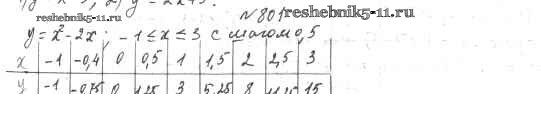 reshebnik5-11.ru
№ 801
reshebnik5-11.ru
y = x² - 2x ; -1 ≤ x ≤ 3 с шагом 0,5
x | -1 | -0,4 | 0 | 0,5 | 1 | 1,5 | 2 | 2,5 | 3
y | -1 | -0,75 | 0 | 1,25 | 3 | 5,25 | 8 | 15